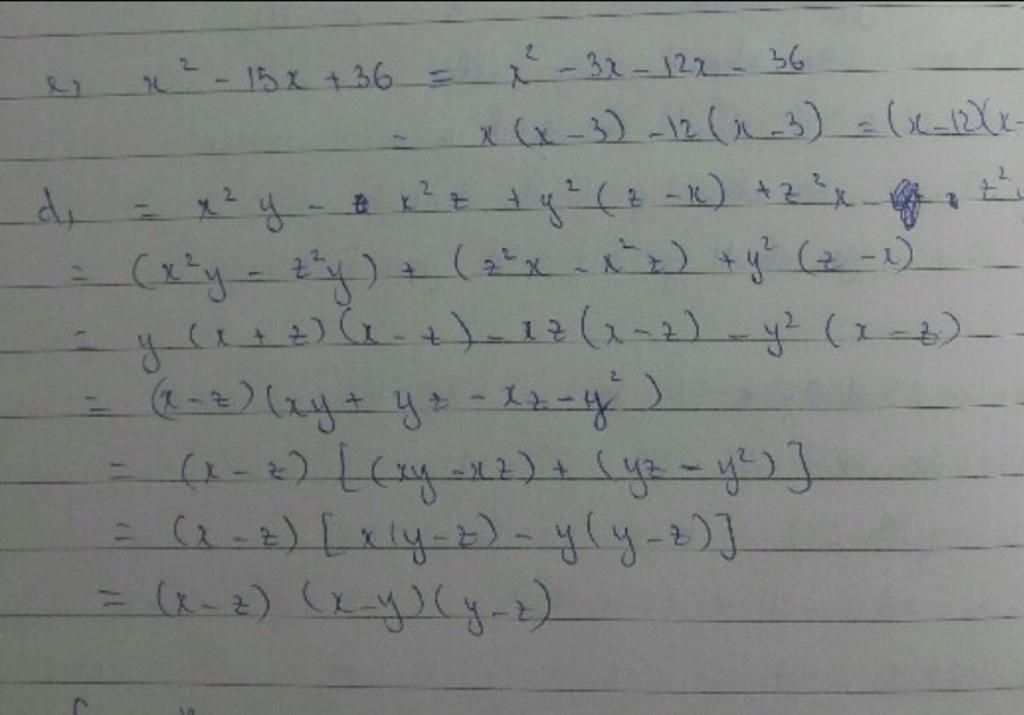 e, x² - 15x + 36 = x² - 3x - 12x - 36
= x(x - 3) - 12(x - 3) = (x - 12)(x -
d, = x²y - x²z + y²(z - x) + z²x - z²
= (x²y - z²y) + (z²x - x²z) + y²(z - x)
= y(x + z)(x - z) - xz(x - z) - y²(x - z)
= (x - z)(xy + yz - xz - y²)
= (x - z)[(xy - xz) + (yz - y²)]
= (x - z)[x(y - z) - y(y - z)]
= (x - z)(x - y)(y - z)